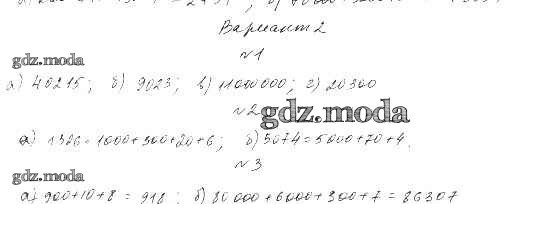 Вариант 2
№1
gdz.moda
а) 40215; б) 9023; в) 11000000; г) 20300
№2
gdz.moda
а) 1326=1000+300+20+6; б) 5074=5000+70+4.
№3
gdz.moda
а) 900+10+8=918; б) 80000+6000+300+7=86307